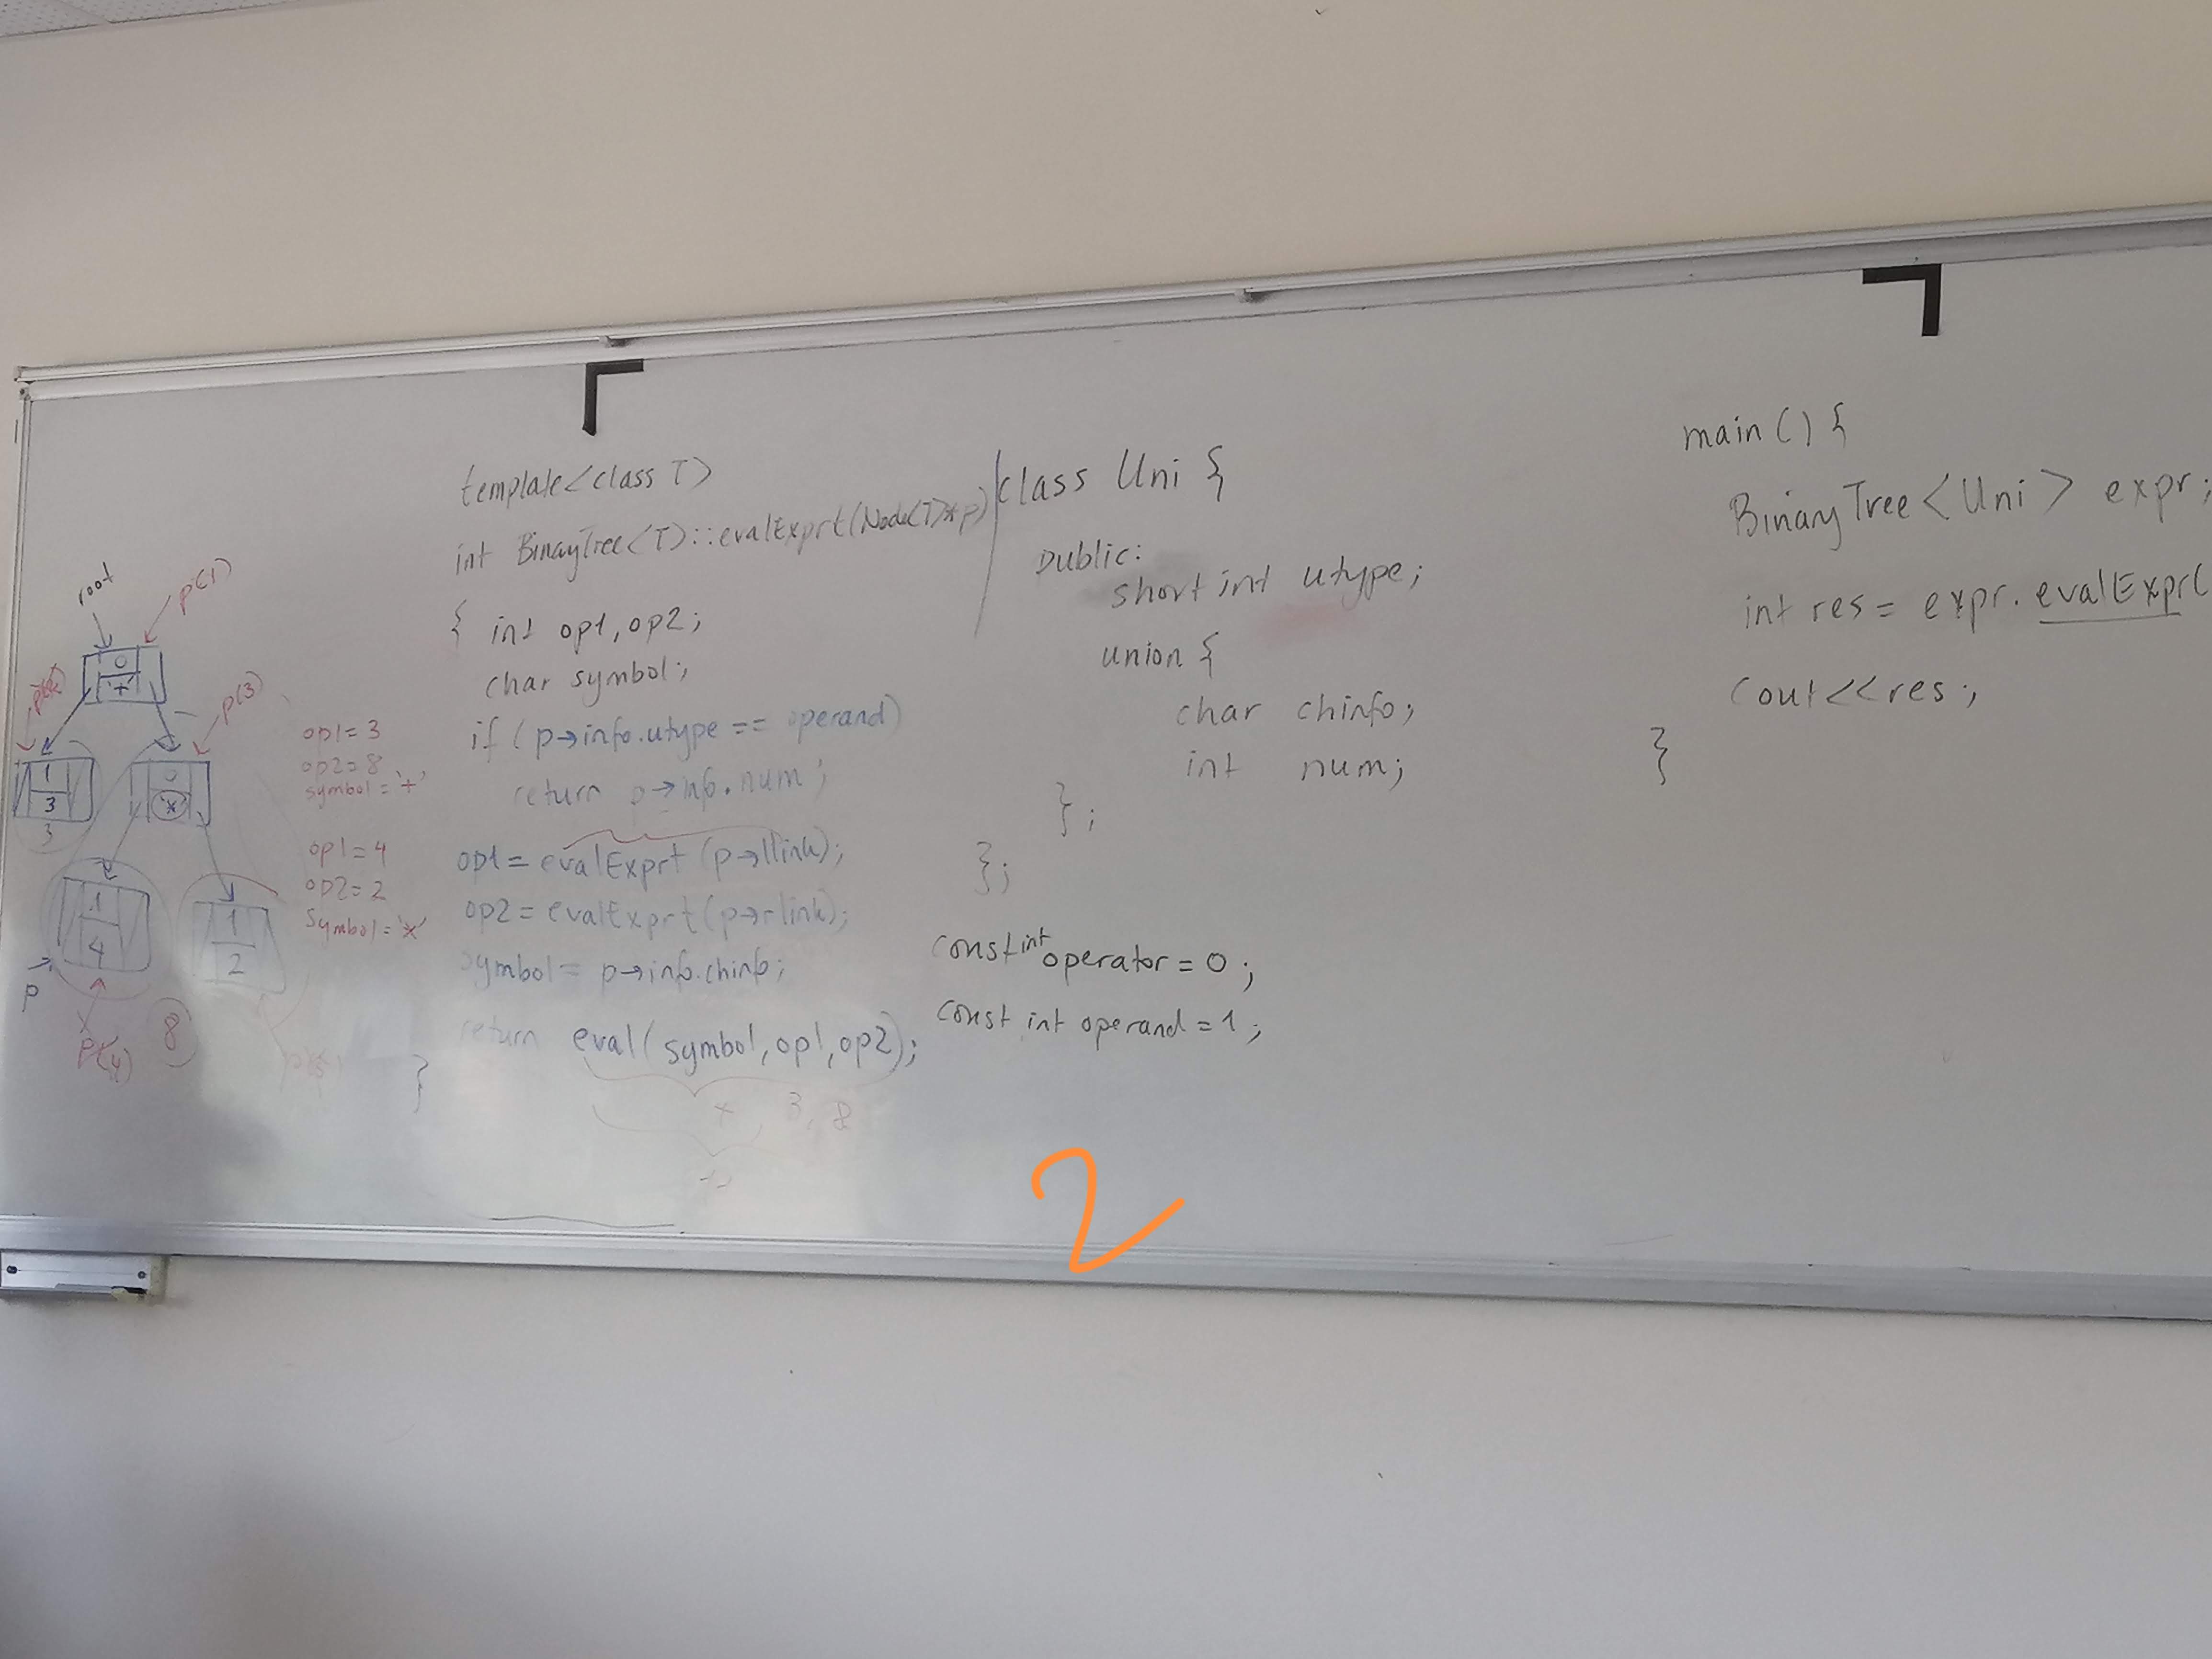 root
p(1)
0
'+'
p(3)
1
3
3
0
'*'
1
4
1
2
p
p(4)
8
op1=3
op2=8
symbol='+'
op1=4
op2=2
symbol='*'
template<class T>
int BinayTree<T>::evalExprt(Node<T>*p)
{ int op1,op2;
char symbol;
if (p→info.utype == operand)
return p→info.num;
op1=evalExprt(p→llink);
op2=evalExprt(p→rlink);
symbol= p→info.chinfo;
return eval(symbol,op1,op2);
}
+ 3, 8
class Uni {
public:
short int utype;
union {
char chinfo;
int num;
};
};
const int operator=0;
const int operand=1;
main() {
BinaryTree<Uni> expr;
int res= expr.evalExpr(
cout<<res;
}
2